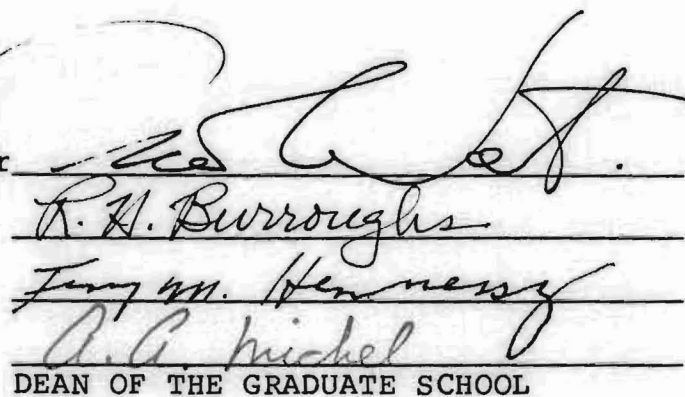 r
R. H. Burroughs
M. Hennessy
A. A. Michel
DEAN OF THE GRADUATE SCHOOL